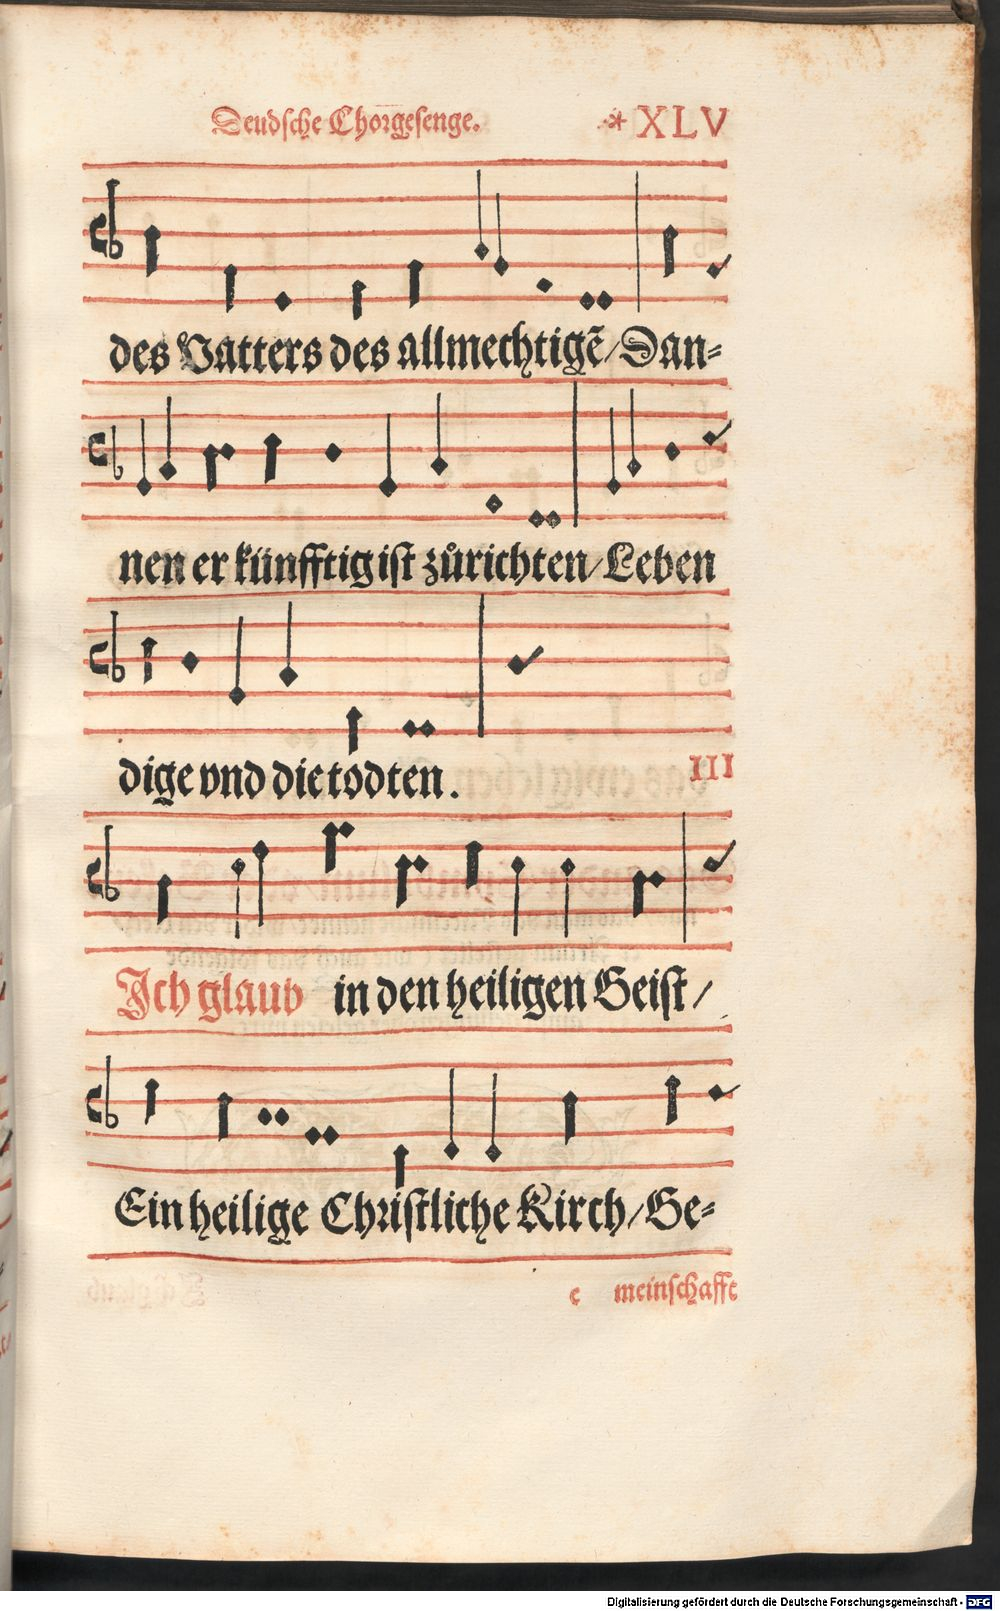 Deudsche Chorgesenge. * XLV
des Vatters des allmechtigẽ / Dan-
nen er künfftig ist zůrichten / Leben
dige vnd die todten.
III
Ich glaub in den heiligen Geist /
Ein heilige Christliche Kirch / Ge-
e meinschafft
Digitalisierung gefördert durch die Deutsche Forschungsgemeinschaft - DFG